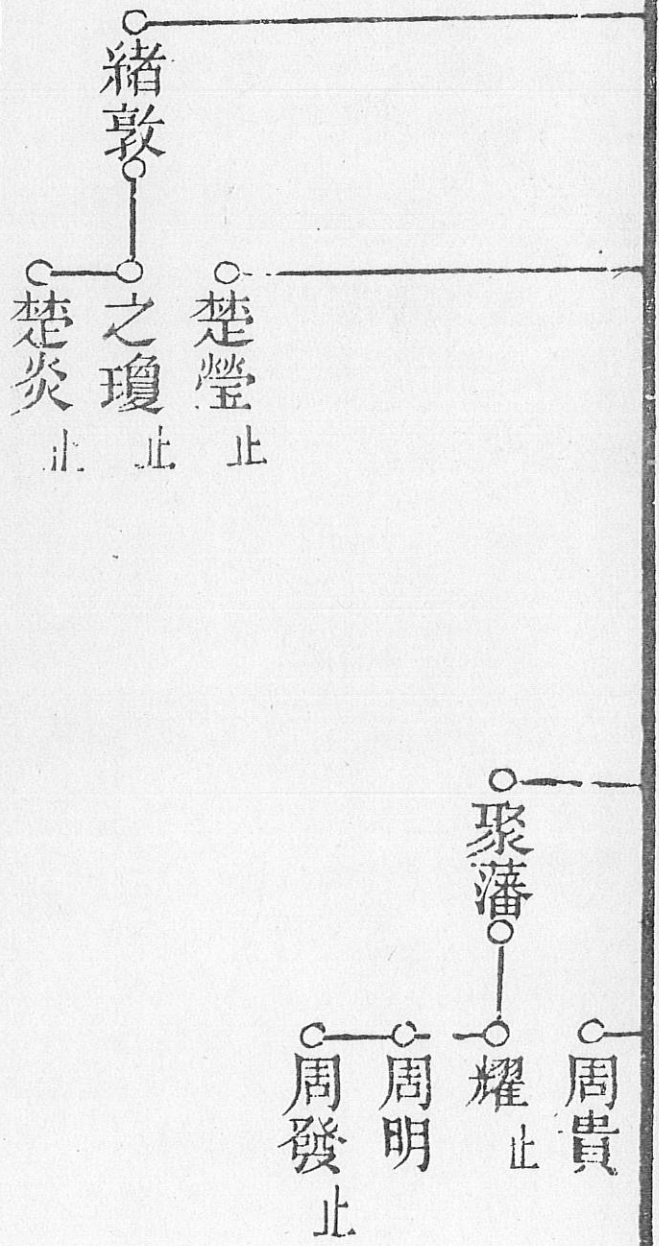 緒敦
楚瑩 止
之瓊 止
楚炎 止
聚藩
周貴
耀 止
周明
周發 止